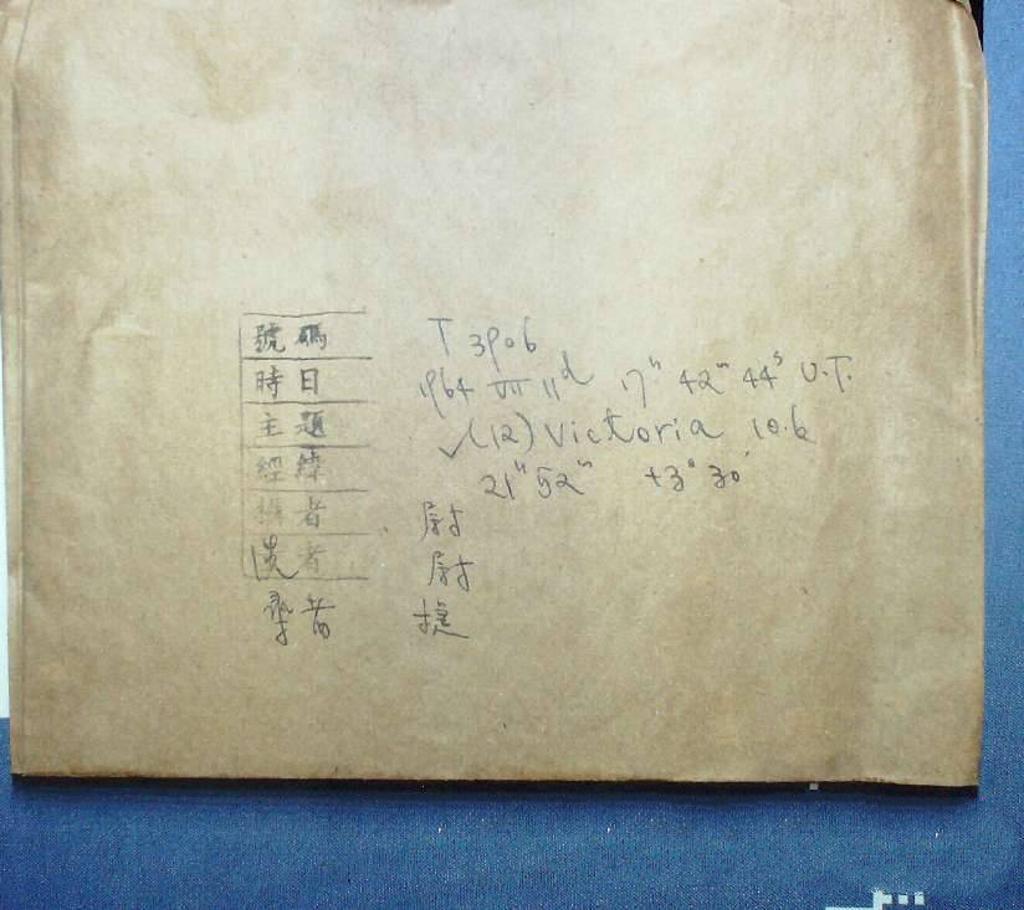 號碼 T 3906
時日 1964 VII 11d 17h 42m 44s U.T.
主題 ✓(12) Victoria 10.6
經緯 21h 52m +3° 30'
攝者 尉
者 尉
者 捷